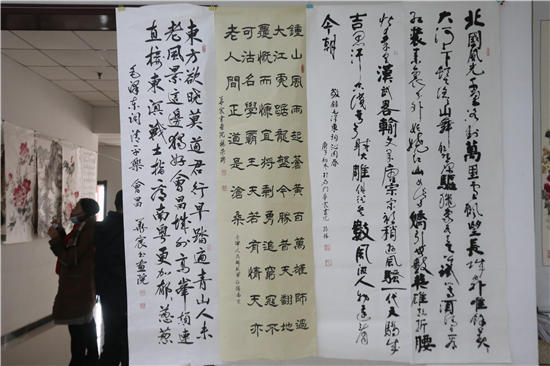 北國風光千里冰封萬里雪飄望長城內外惟餘莽莽
大河上下頓失滔滔山舞銀蛇原馳蠟象欲與天公試比高
紅裝素裹分外妖嬈江山如此多嬌引無數英雄競折腰
惜秦皇漢武略輸文采唐宗宋祖稍遜風騷一代天驕成
吉思汗只識彎弓射大雕俱往矣數風流人物還看
今朝
敬錄毛澤東詞沁園春
鍾山風雨起蒼黃百萬雄師過
大江虎踞龍盤今勝昔天翻地
覆慨而慷宜將剩勇追窮寇不
可沽名學霸王天若有情天亦
老人間正道是滄桑
東方欲曉莫道君行早踏遍青山人未
老風景這邊獨好會昌城外高峯顛連
直接東溟戰士指看南粵更加鬱蔥蔥
毛澤東詞清平樂會昌
書画院